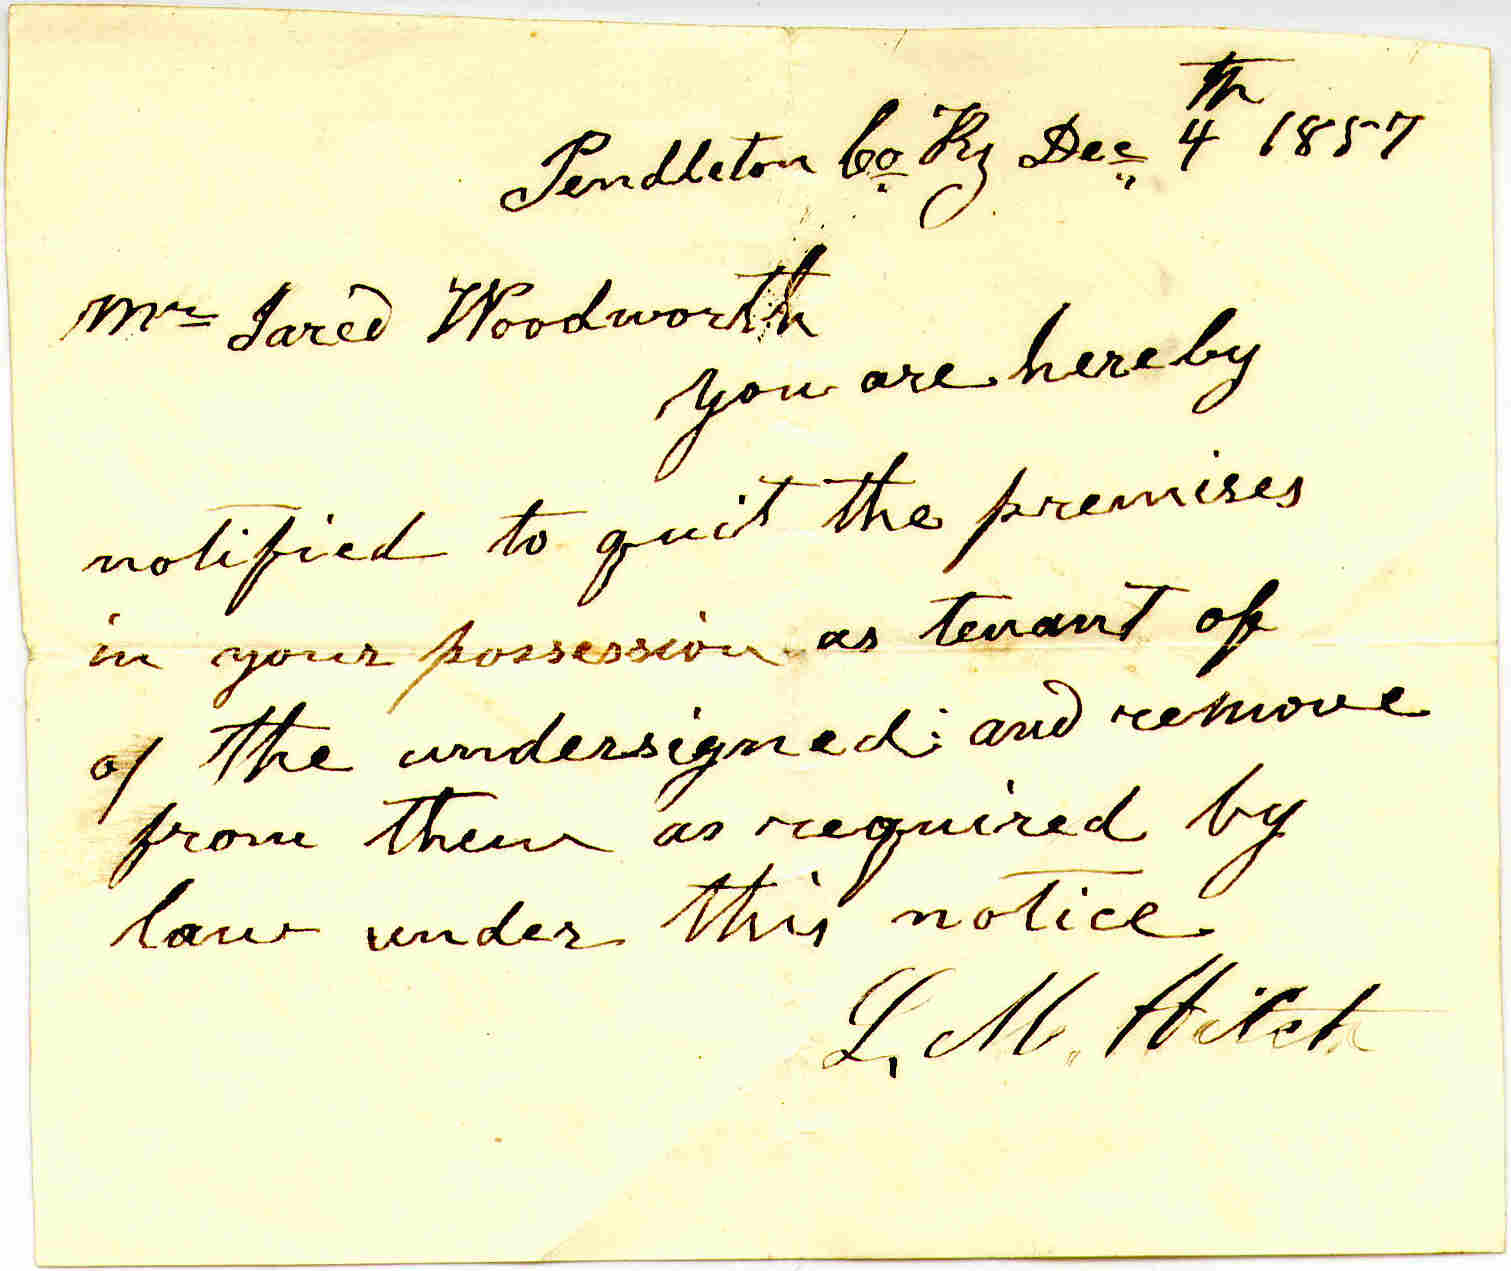 Pendleton Co Ky Dec 4th 1857
Mr Jared Woodworth
you are hereby
notified to quit the premises
in your possession as tenant of
of the undersigned; and remove
from them as required by
law under this notice
L. M. Hitch